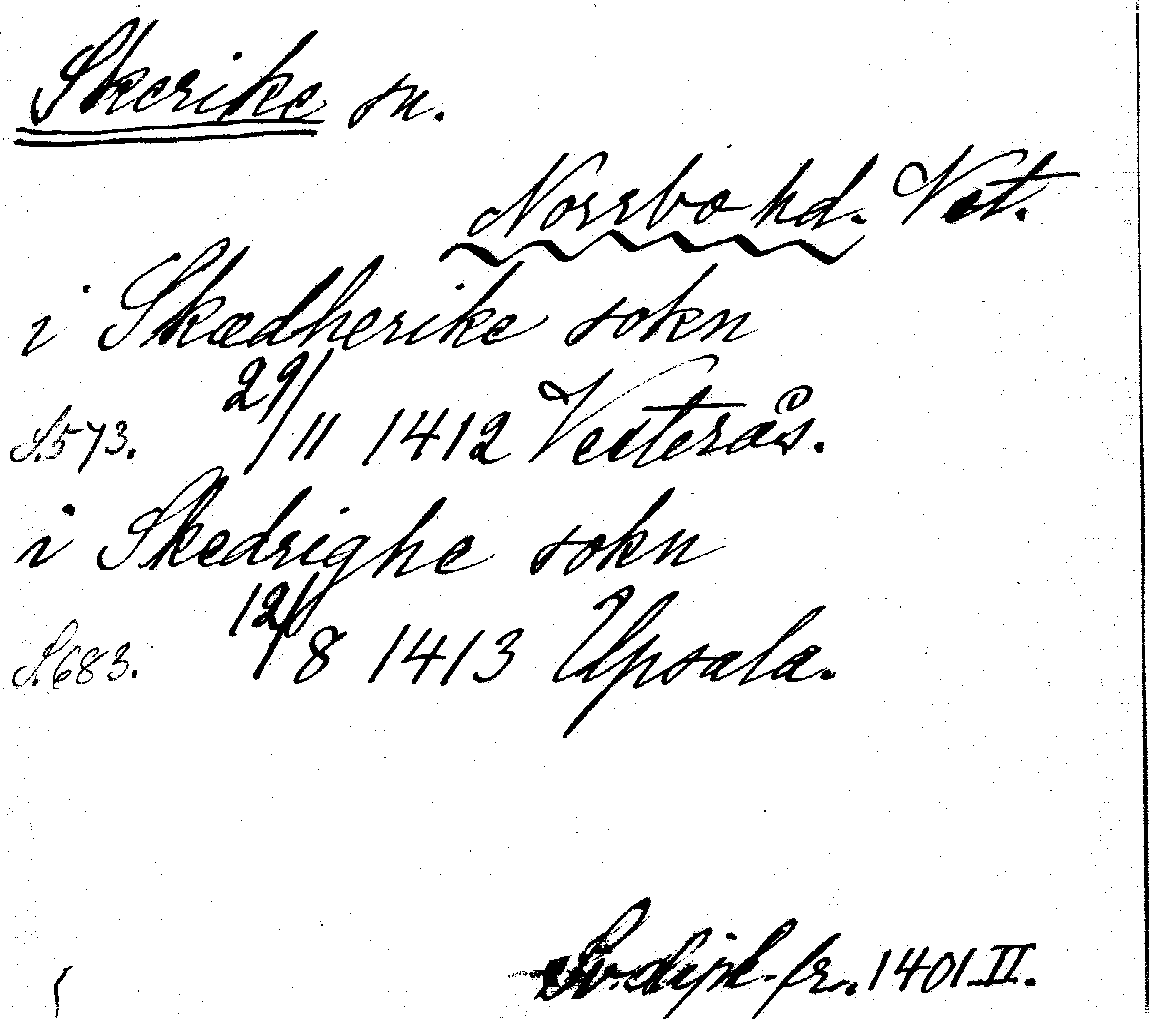 Skerike sn.
Norrbo hd. Vst.
i Skædherike sokn
S. 573. 29/11 1412 Vesterås.
i Skedrighe sokn
S. 683. 12/8 1413 Upsala.
Sv. dipl. fr. 1401 II.